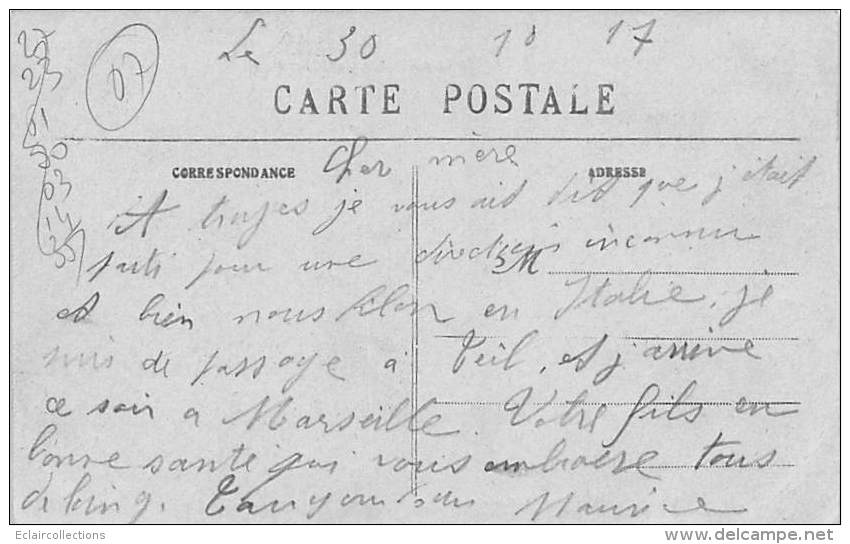 Le 30 10 17
07
CARTE POSTALE
CORRESPONDANCE
ADRESSE
Cher mère
A troyes je vous ait dit que j'étais
parti pour une direction inconnue
et bien nous filon en Italie, je
suis de passage à Teil, et j'arrive
ce soir a Marseille. Votre fils en
bonne santé qui vous embrasse tous
Maurice
Eclaircollections
www.delcampe.net